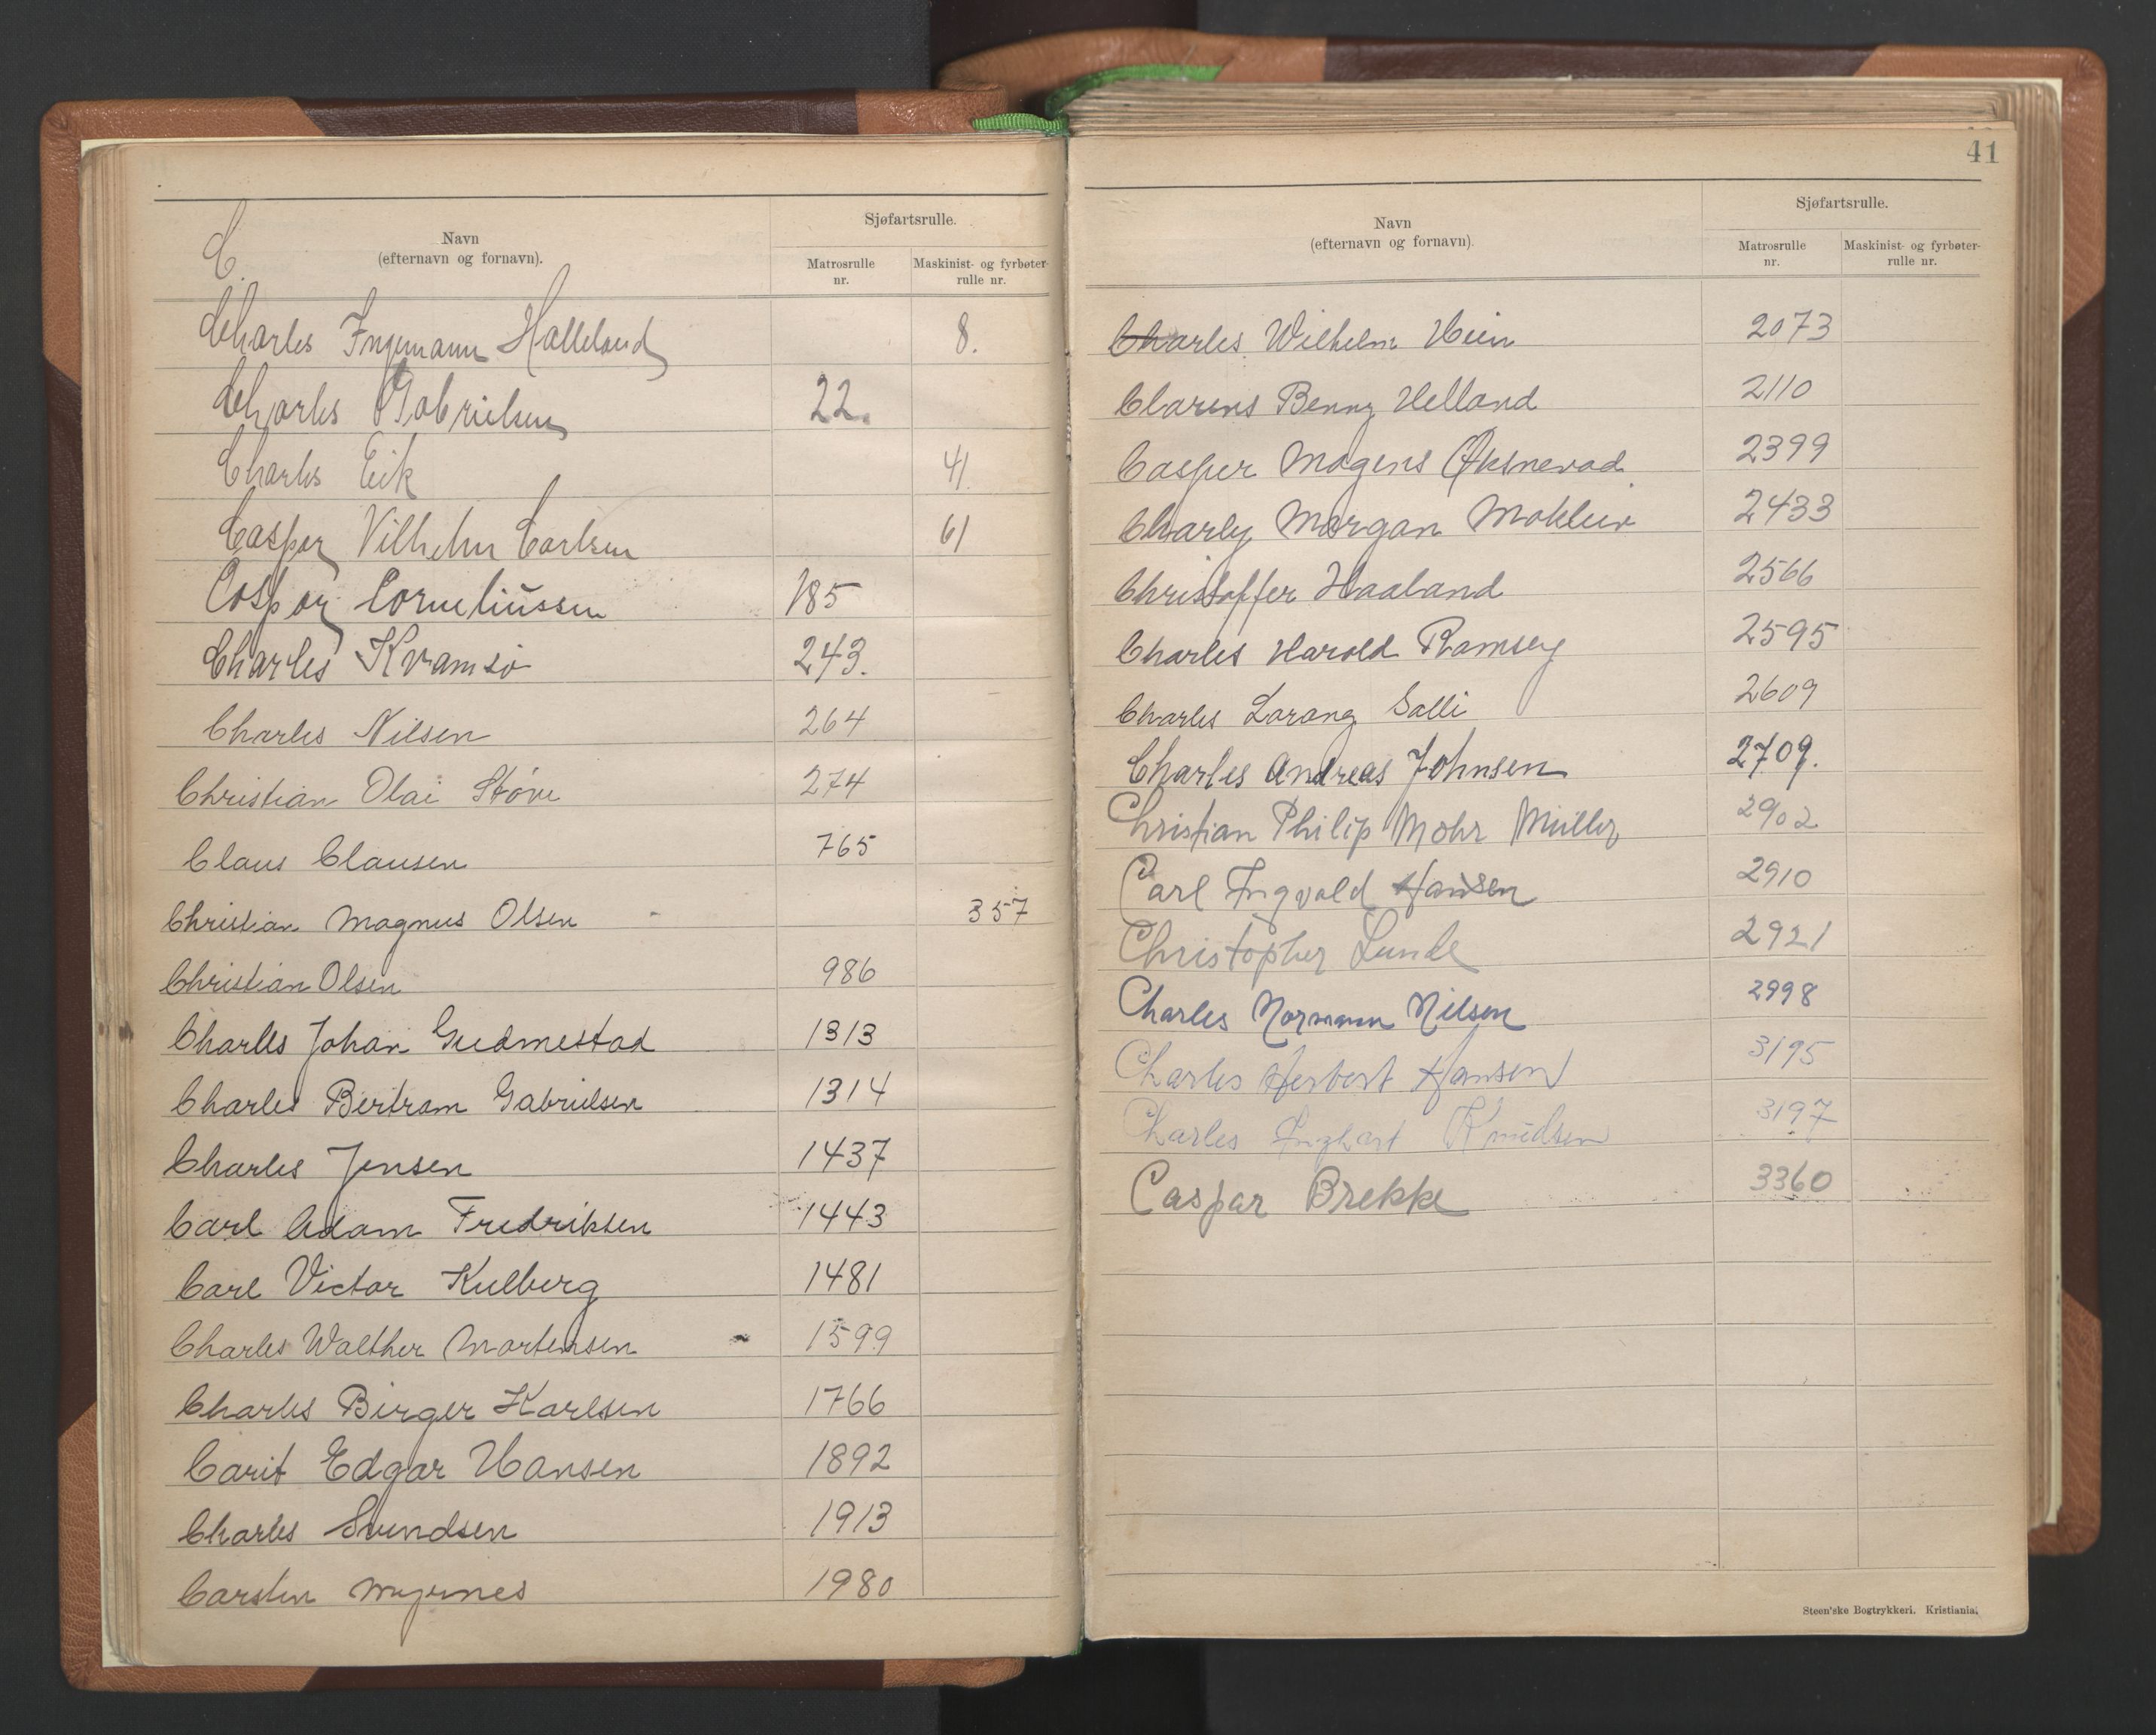 C.
Navn
(efternavn og fornavn).
Sjøfartsrulle.
Matrosrulle
nr.
Maskinist- og fyrbøter-
rulle nr.
Charles Ingemann Halleland 8.
Charles Gabrielsen 22.
Charles Eik 41
Caspar Vilhelm Carlsen 61
Caspar Corneliussen 185
Charles Kvamsø 243.
Charles Nilsen 264
Christian Olai Støve 274
Claus Clausen 765
Christian Magnus Olsen 357
Christian Olsen 986
Charles Johan Gudmestad 1313
Charles Bertram Gabrielsen 1314
Charles Jensen 1437
Carl Adam Fredriksen 1443
Carl Victor Kulberg 1481
Charles Walther Mortensen 1599
Charles Birger Karlsen 1766
Carit Edgar Hansen 1892
Charles Svendsen 1913
Carsten Myrnes 1980
41
Navn
(efternavn og fornavn).
Sjøfartsrulle.
Matrosrulle
nr.
Maskinist- og fyrbøter-
rulle nr.
Charles Wilhelm Hein 2073
Clarens Benny Helland 2110
Casper Mogens Øksnevad 2399
Charly Morgan Mokleiv 2433
Christoffer Haaland 2566
Charles Harold Ramsey 2595
Charles Lorang Salli 2609
Charles Andreas Johnsen 2709.
Christian Philip Mohr Müller 2902
Carl Ingvald Hansen 2910
Christopher Lunde 2921
Charles Normann Nilsen 2998
Charles Herbert Hansen 3195
Charles Inghart Knudsen 3197
Caspar Brekke 3360
Steen'ske Bogtrykkeri. Kristiania.